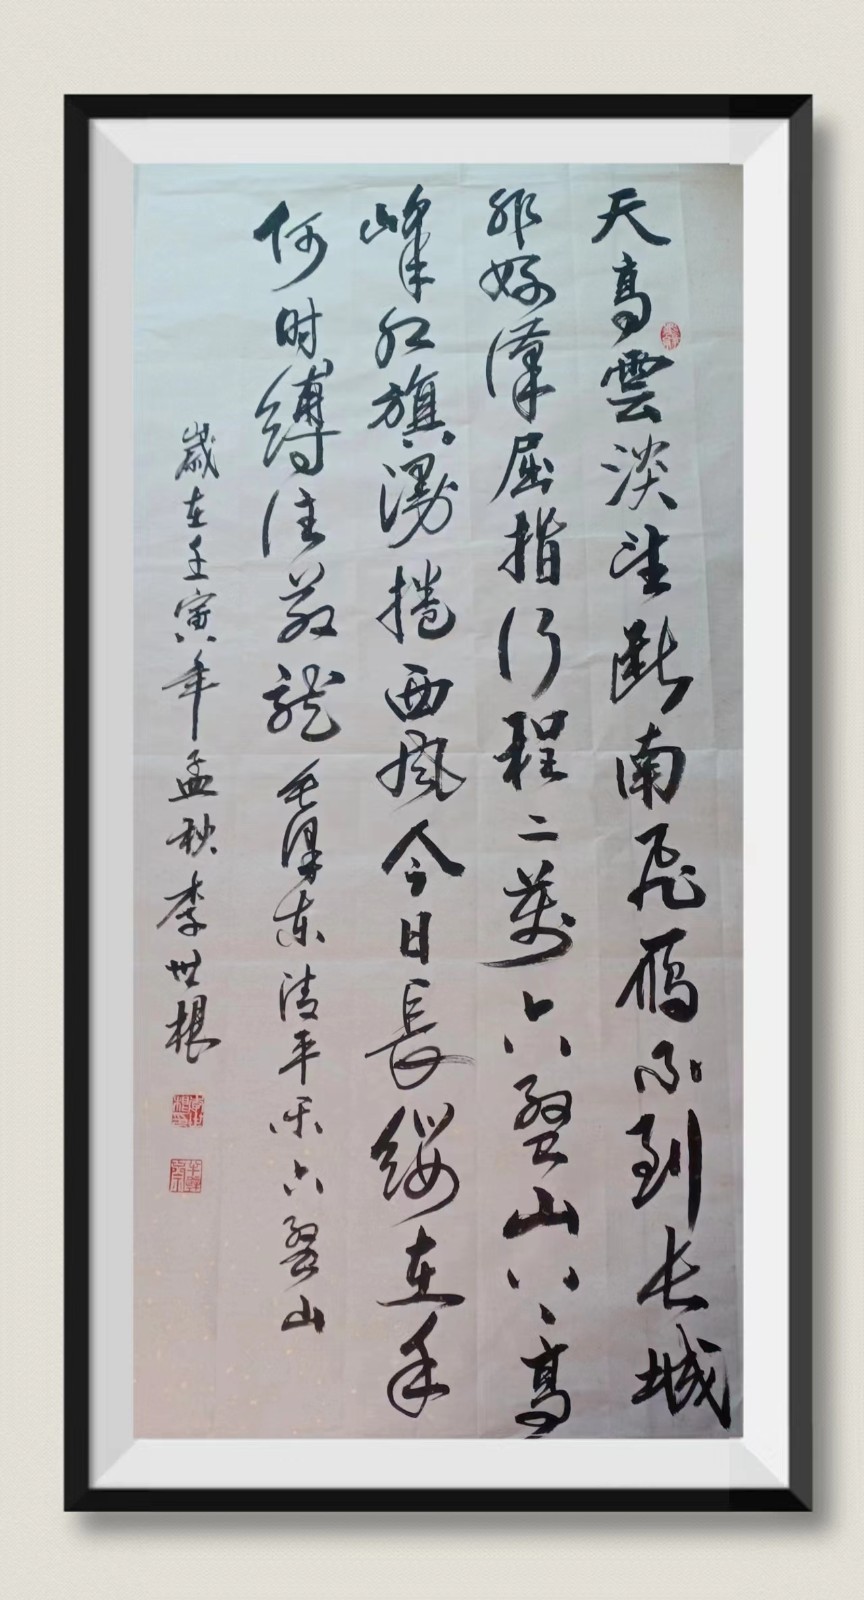 天高雲淡望斷南飛雁不到长城
非好漢屈指行程二萬六盤山上高
峰红旗漫捲西風今日長纓在手
何时縛住蒼龍 毛澤东清平乐六盤山
歲在壬寅年孟秋李世根